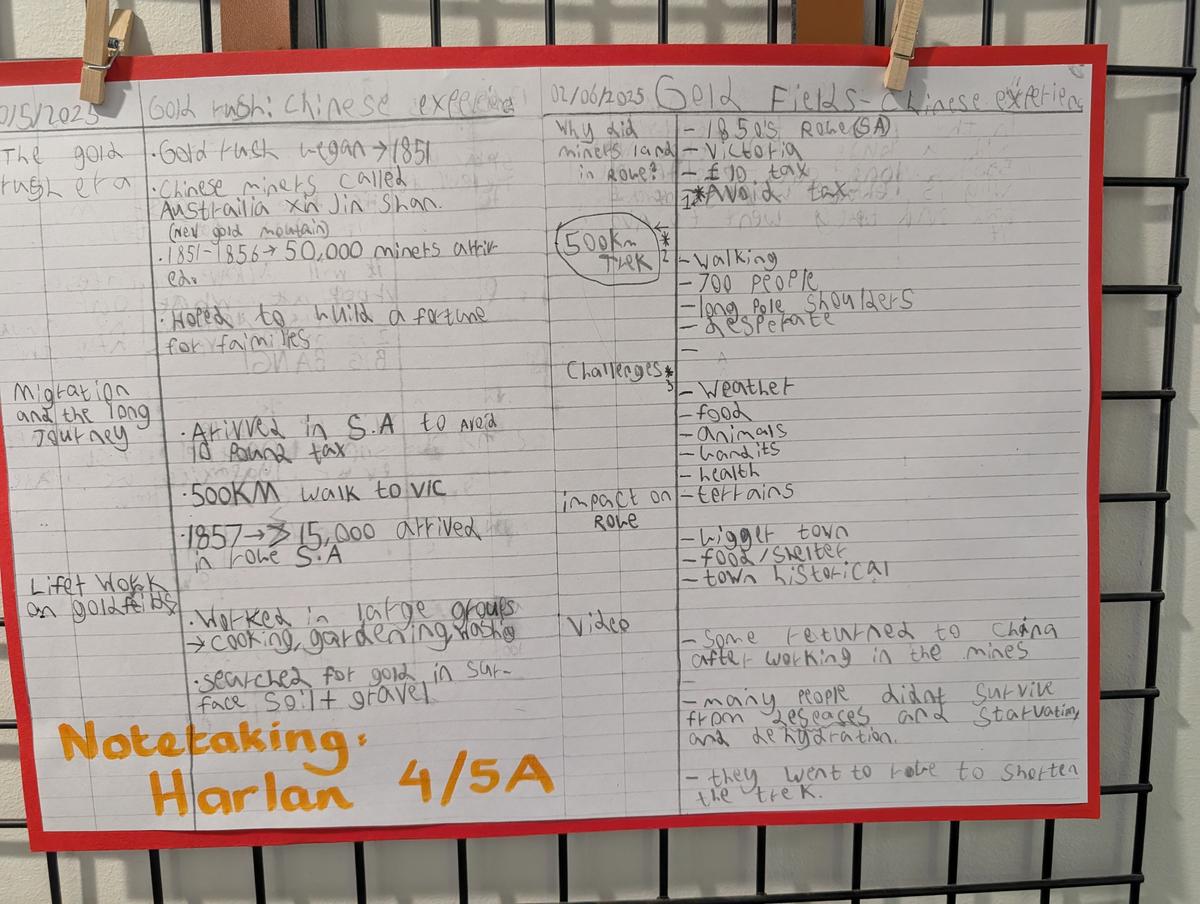 0/5/2025
Gold rush: Chinese experience
The gold
rush era
· Gold rush began → 1851
· Chinese miners called
Austrailia xin Jin Shan.
(new gold mountain)
· 1851-1856 → 50,000 miners arriv-
ed.
· Hoped to build a fortune
for faimilies
Migration
and the long
Journey
· Arrived in S.A to avoid
10 Pound tax
· 500KM walk to VIC
· 1857 → 15,000 arrived
in robe S.A
Life+ Work
on goldfeilds
· Worked in large groups
→ cooking, gardening, wash
· searched for gold in sur-
face soil + gravel
02/06/2025
Gold Fields - Chinese experienc
Why did
miners land
in Robe?
- 1850's Robe (SA)
- Victoria
- £10 tax
1* Avoid tax
500km
Trek
*2
- walking
- 700 people
- long pole shoulders
- desperate
-
Challenges *3
- weather
- food
- animals
- bandits
- health
- terrains
impact on
Robe
- bigger town
- food/shelter
- town historical
Video
- Some returned to China
after working in the mines
- many people didnt survive
from deseases and starvation,
and dehydration.
- they went to robe to shorten
the trek.
Notetaking:
Harlan 4/5A